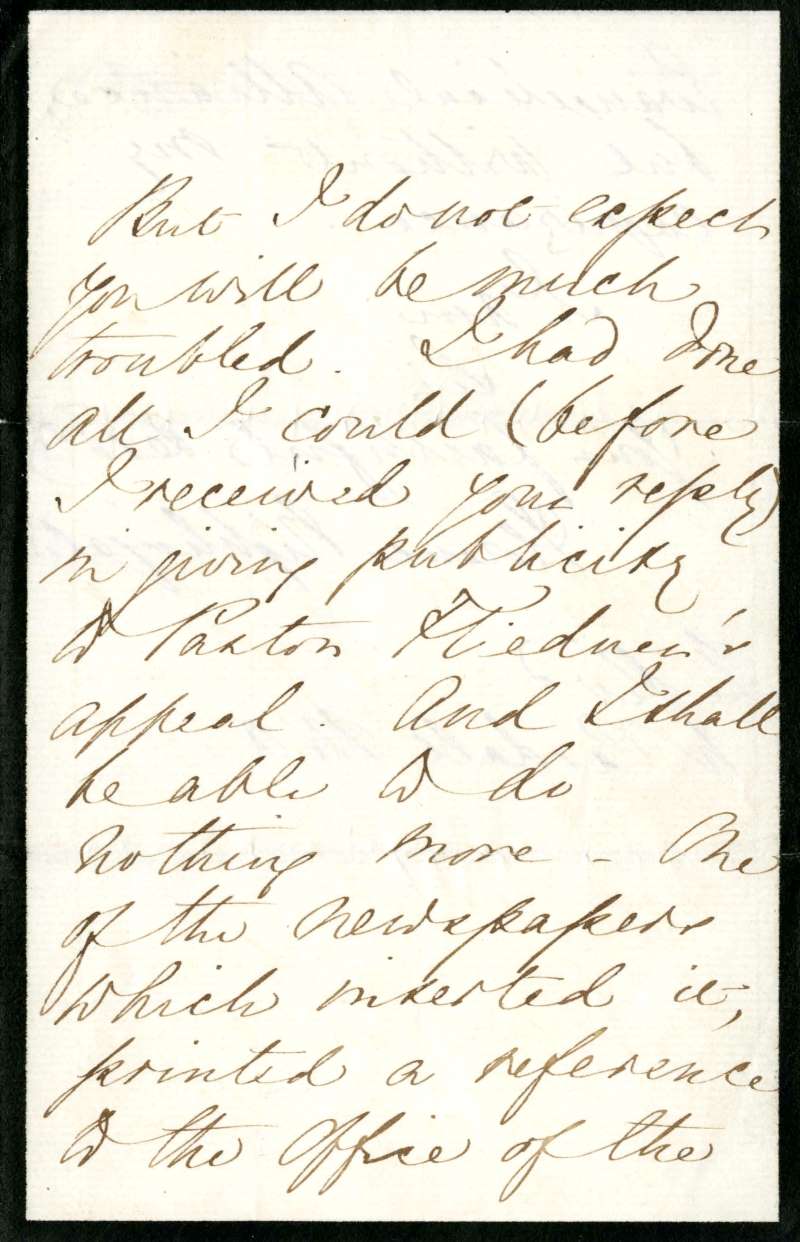 But I do not expect
you will be much
troubled. I had done
all I could (before
I received your reply)
in giving publicity
to Pastor Fliedner's
appeal. And I shall
be able to do
nothing more - One
of the newspapers
which inserted it,
printed a reference
to the Office of the